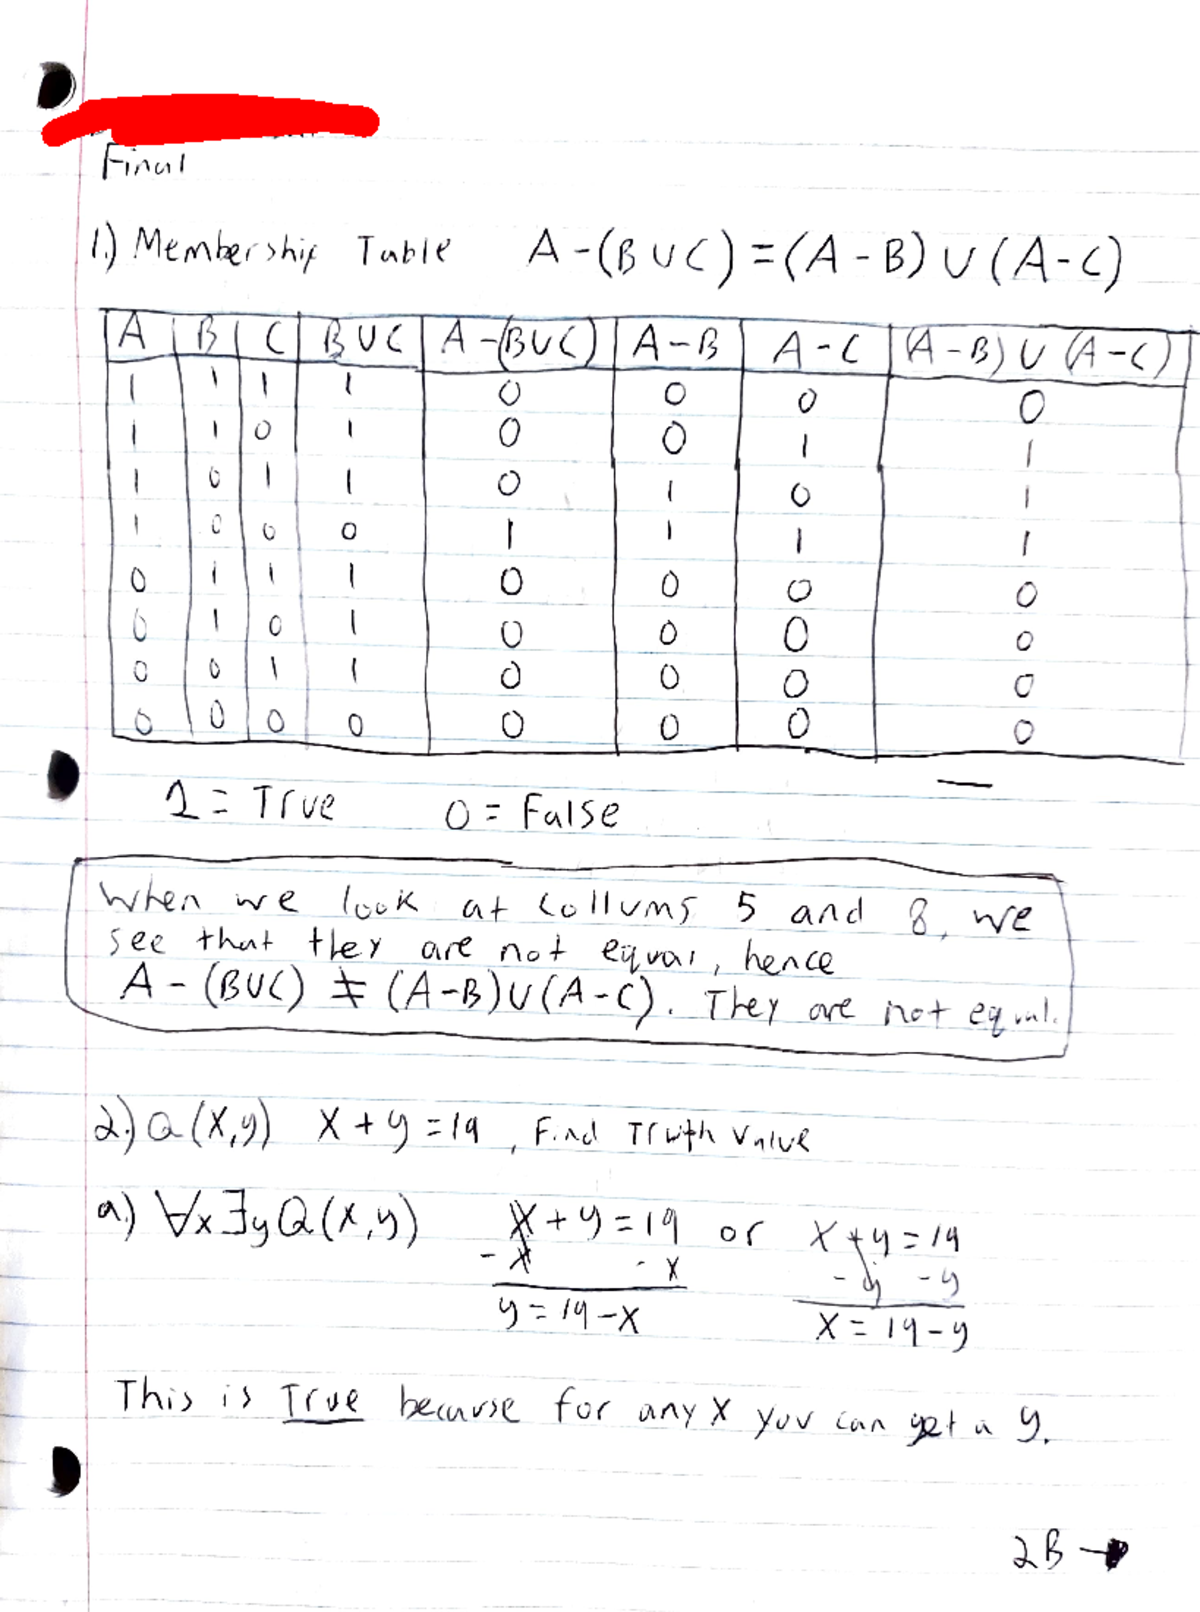 Final
1.) Membership Table A-(B∪C)=(A-B)∪(A-C)
A B C B∪C A-(B∪C) A-B A-C (A-B)∪(A-C)
1 1 1 1 0 0 0 0
1 1 0 1 0 0 1 1
1 0 1 1 0 1 0 1
1 0 0 0 1 1 1 1
0 1 1 1 0 0 0 0
0 1 0 1 0 0 0 0
0 0 1 1 0 0 0 0
0 0 0 0 0 0 0 0
1 = True 0 = False
When we look at collums 5 and 8, we
see that they are not equal, hence
A-(B∪C) ≠ (A-B)∪(A-C). They are not equal.
2.) Q(x,y) x+y=19, Find Truth Value
a.) ∀x∃yQ(x,y) x+y=19 or x+y=19
-x -x -y -y
y=19-x x=19-y
This is True because for any x you can get a y.
2B →